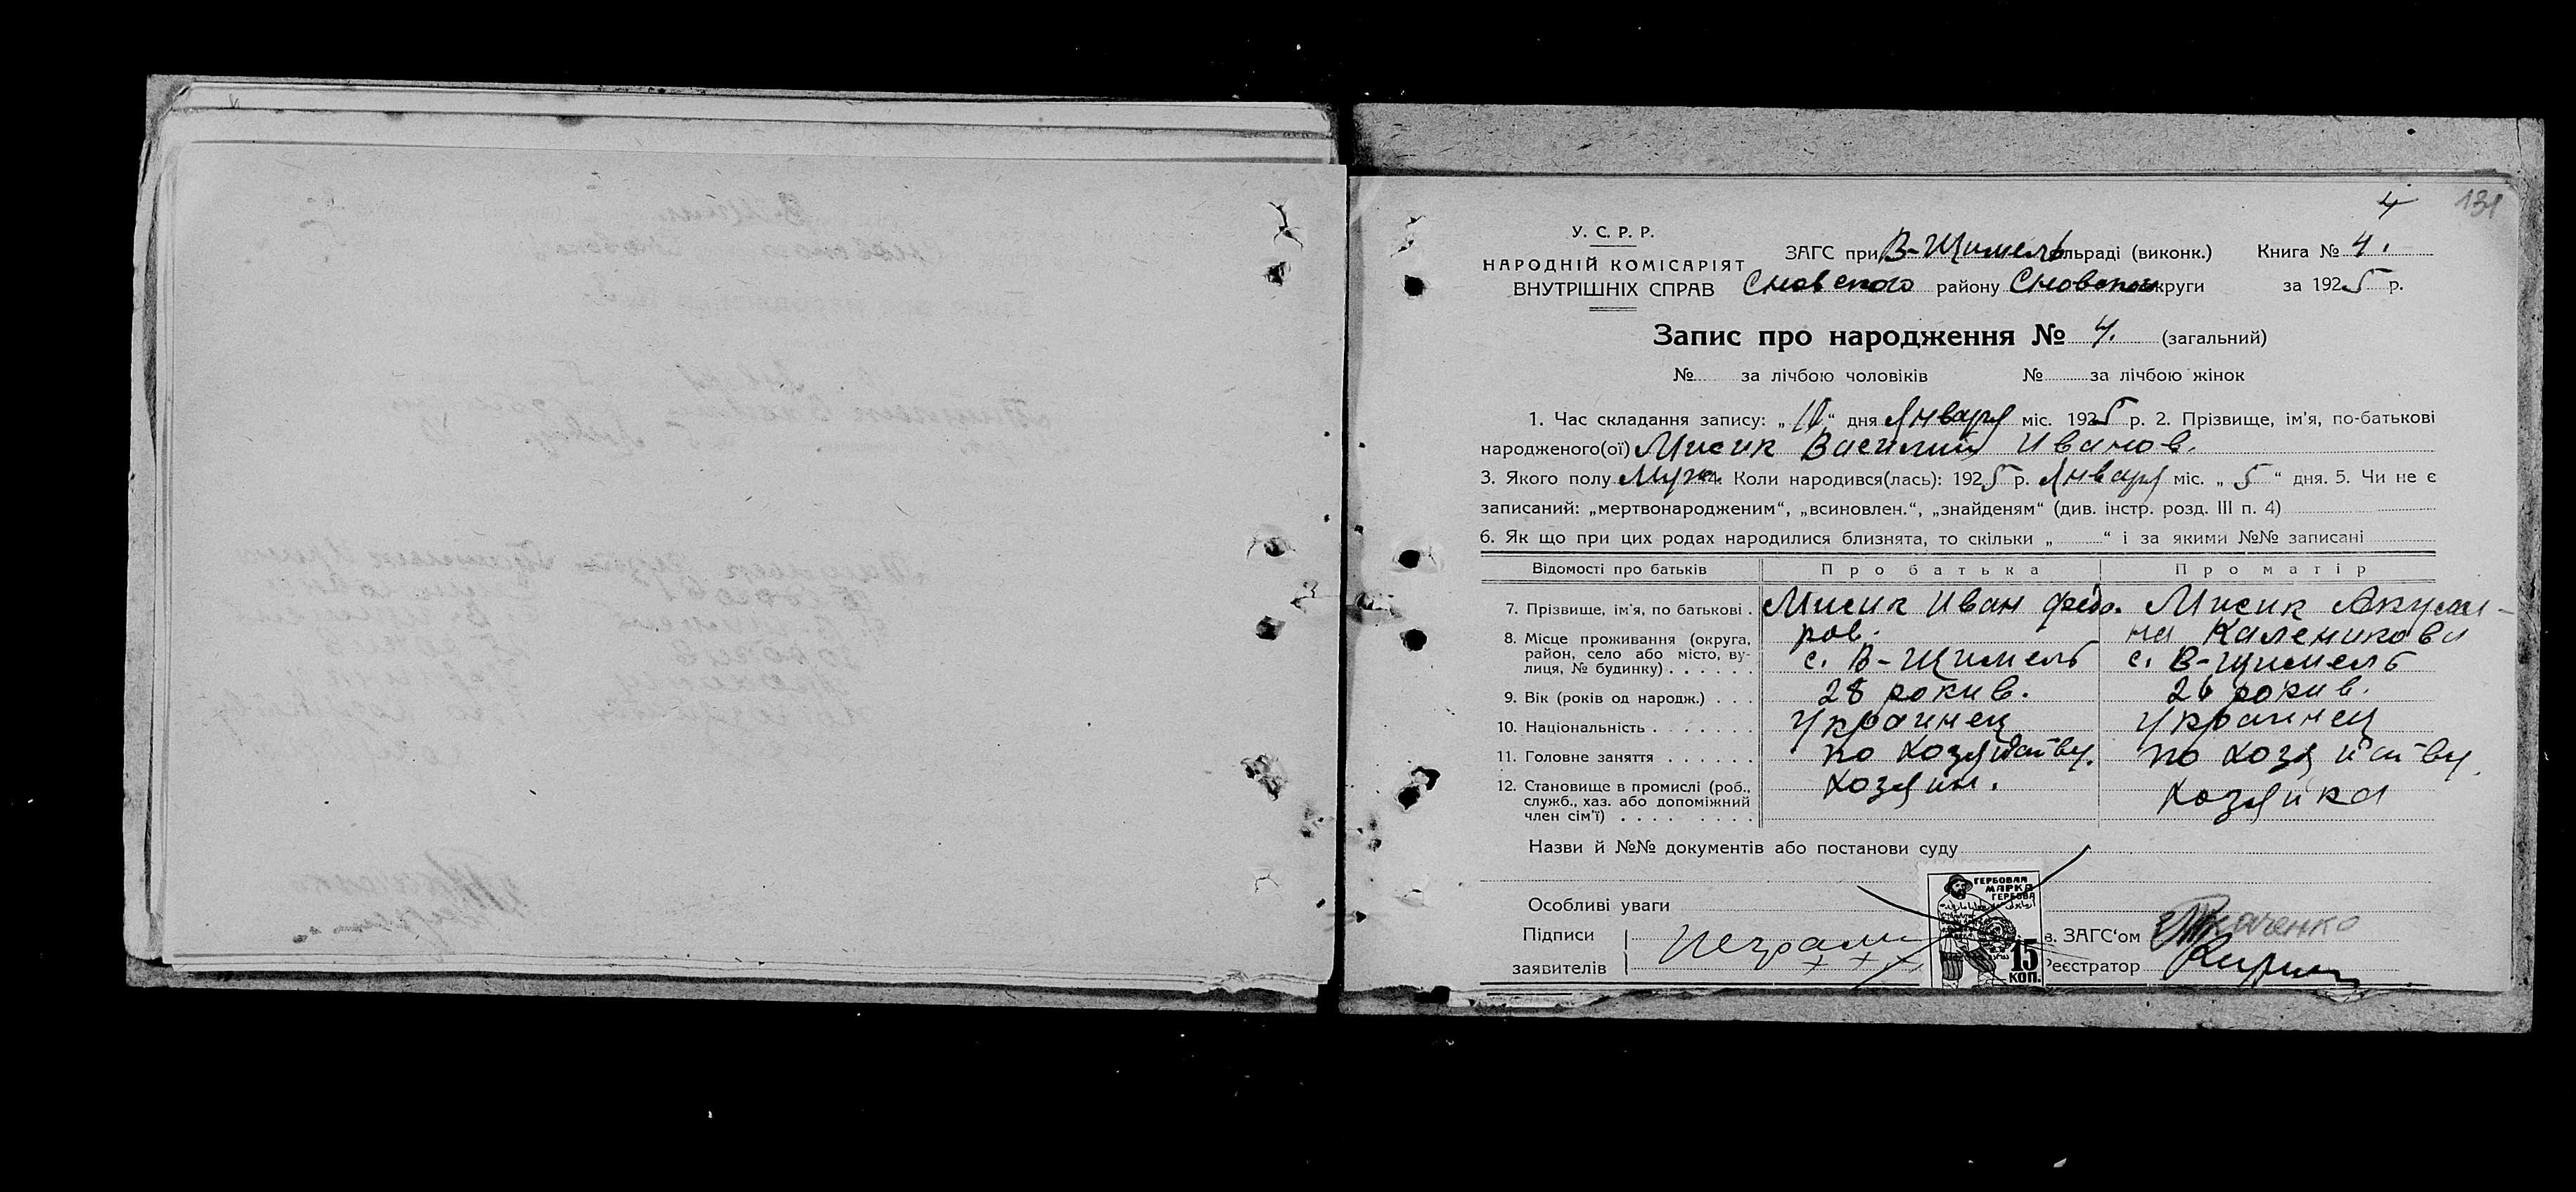 4 131
У. С. Р. Р.
НАРОДНІЙ КОМІСАРІЯТ
ВНУТРІШНІХ СПРАВ
ЗАГС при В-Щимель ільраді (виконк.) Книга № 4.
Сновского району Сновской округи за 1925 р.
Запис про народження № 4. (загальний)
№ за лічбою чоловіків № за лічбою жінок
1. Час складання запису: „10“ дня Января міс. 1925 р. 2. Прізвище, ім'я, по-батькові
народженого(ої) Мисик Василий Иванов.
3. Якого полу Муж. Коли народився(лась): 1925 р. Января міс. „5“ дня. 5. Чи не є
записаний: „мертвонародженим“, „всиновлен.“, „знайденям“ (див. інстр. розд. III п. 4)
6. Як що при цих родах народилися близнята, то скільки „ “ і за якими №№ записані
Відомості про батьків Про батька Про матір
7. Прізвище, ім'я, по батькові . Мисик Иван Федо. Мисик Акули-
ров. на Каленикова
8. Місце проживання (округа,
район, село або місто, ву-
лиця, № будинку) . . . . . . с. В-Щимель с. В-Щимель
9. Вік (років од народж.) . . . 28 рокив. 26 рокив.
10. Національність . . . . . . . Украинец Украинец
11. Головне заняття . . . . . . по хозяйству. по хозяйству.
12. Становище в промислі (роб.,
служб., хаз. або допоміжний
член сім'ї) . . . . . . . . хозяин. хозяйка
Назви й №№ документів або постанови суду
Особливі уваги
ГЕРБОВАЯ
МАРКА
ГЕРБОВА
15
КОП.
Підписи
заявителів
Неграм
+ + +
в. ЗАГС'ом Ткаченко
Реєстратор